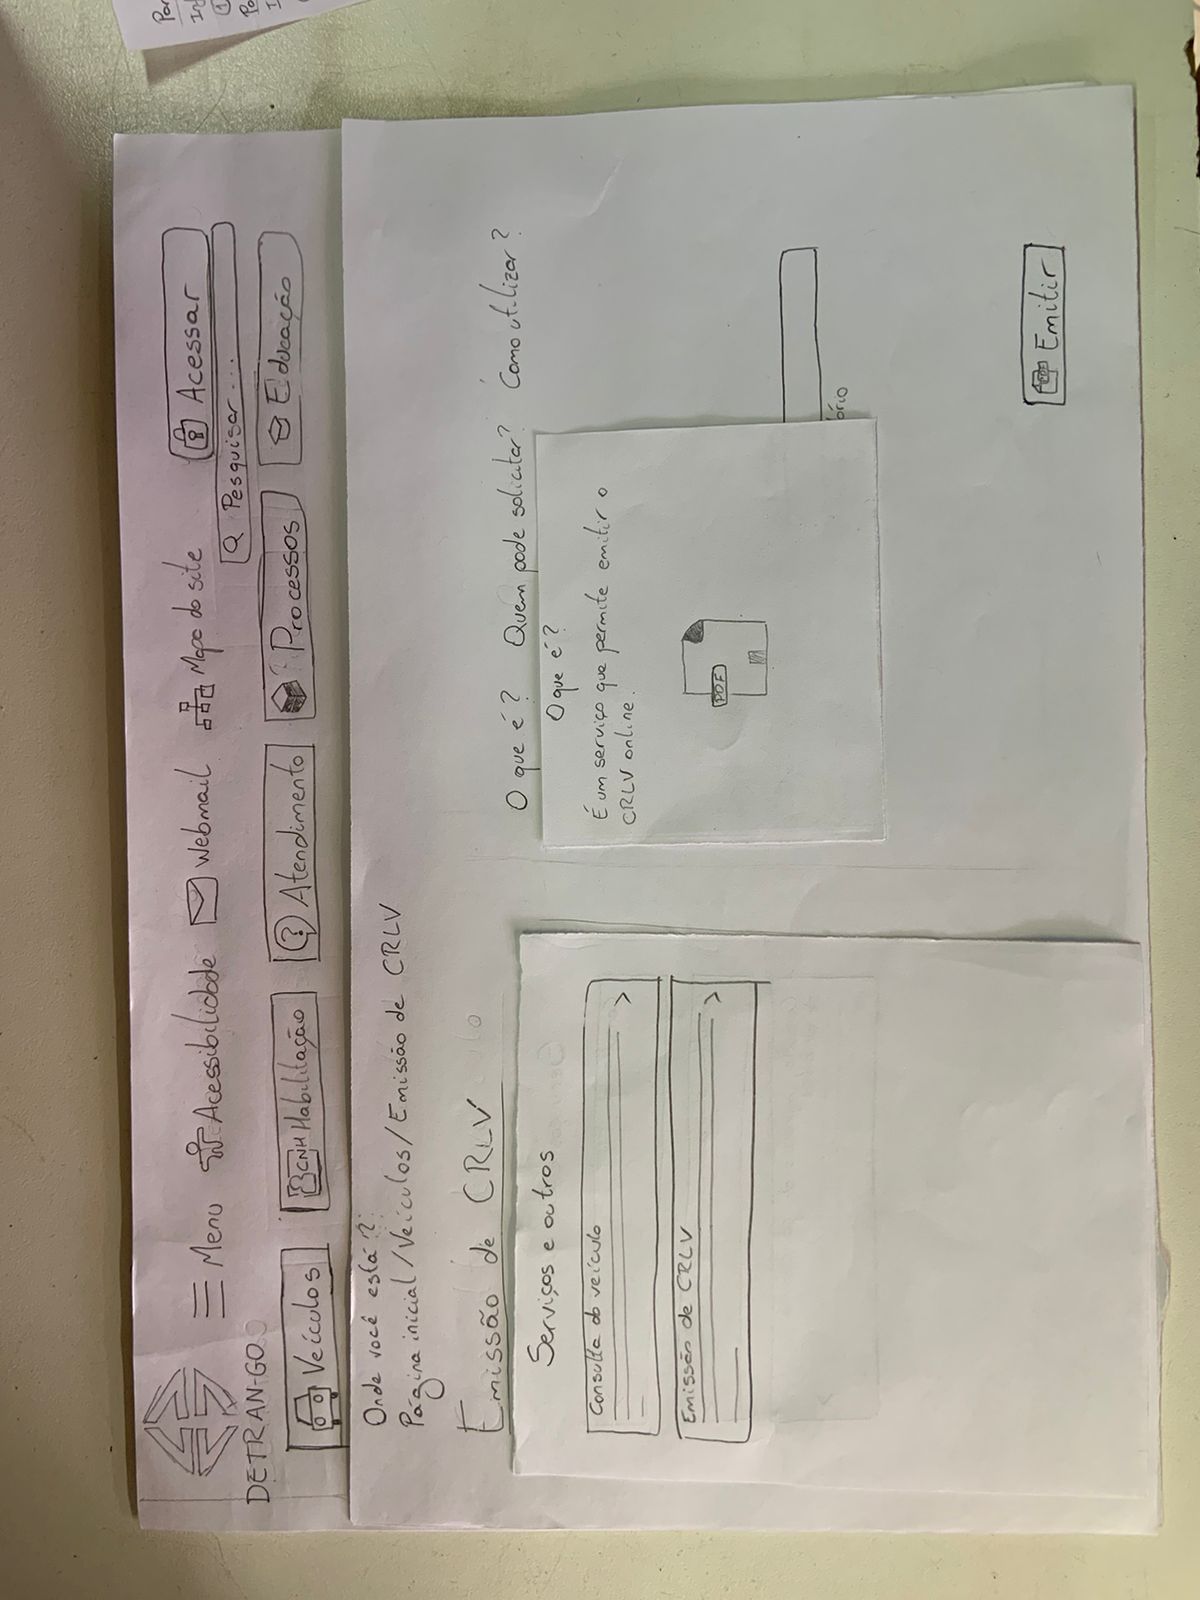 Menu
Acessibilidade
Webmail
Mapa do site
Acessar
Pesquisar...
DETRAN-GO
Veículos
CNH Habilitação
Atendimento
Processos
Educação
Onde você está?
Página inicial/Veículos/Emissão de CRLV
Emissão de CRLV
Serviços e outros
Consulta do veículo
Emissão de CRLV
O que é? Quem pode solicitar? Como utilizar?
O que é?
É um serviço que permite emitir o
CRLV online.
PDF
ório
Emitir